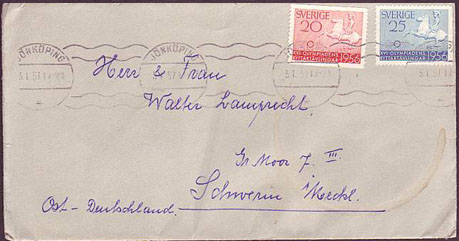 SVERIGE SVERIGE
20 25
XVI OLYMPIADENS XVI OLYMPIADENS
RYTTARTÄVLINGAR 1956 RYTTARTÄVLINGAR 1956
JÖNKÖPING JÖNKÖPING
3.1.57
Herr & Frau
Walter Lamprecht
Gr Moor 7. III
Schwerin i/Meckl.
Ost-Deutschland.